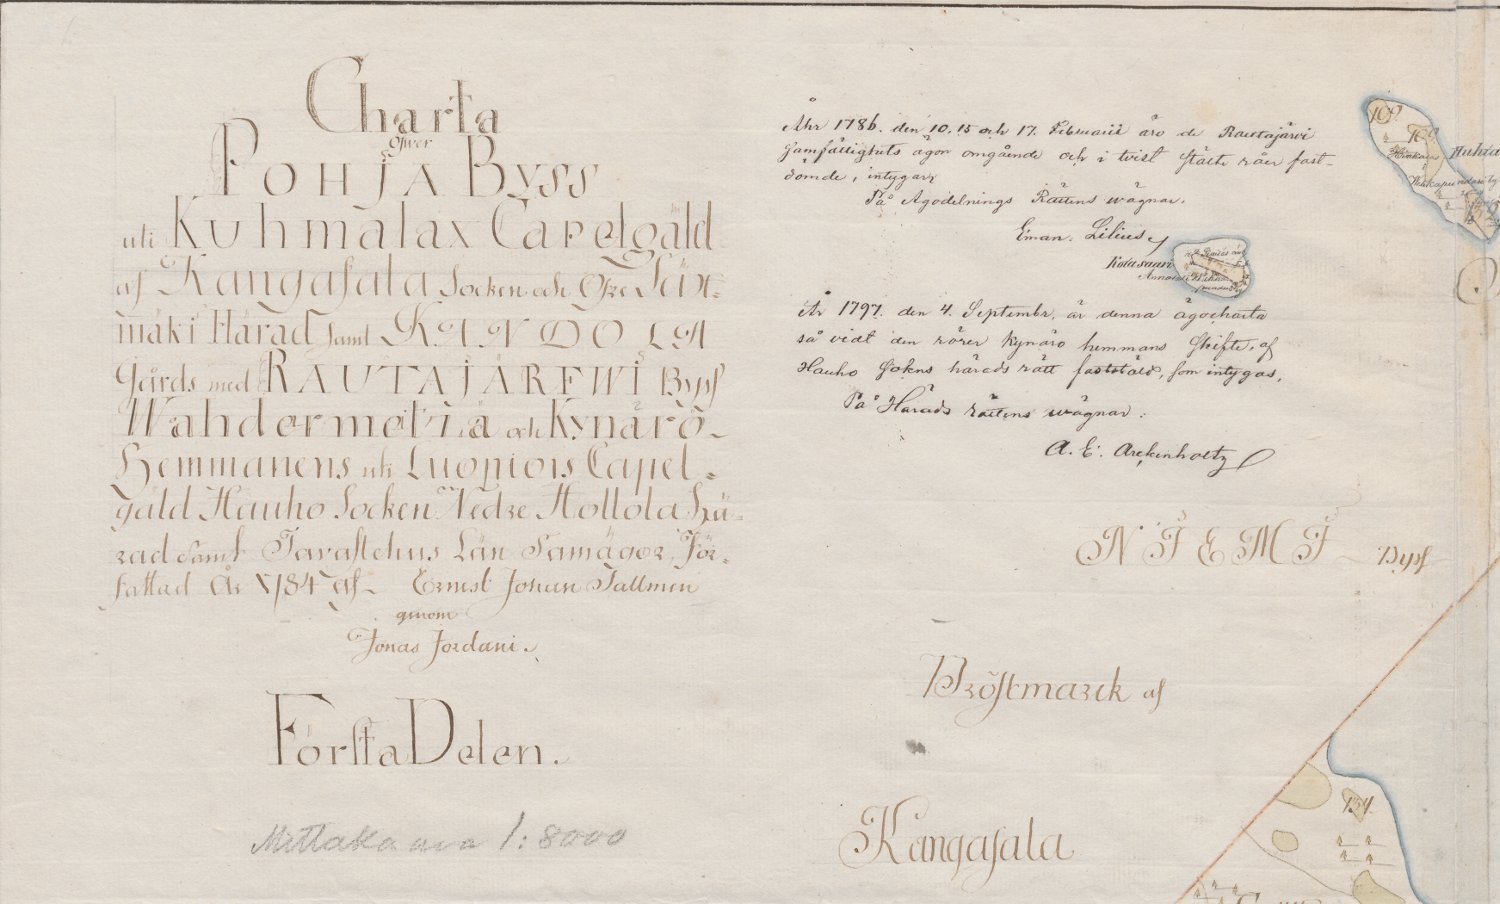 Charta
öfwer
POHJA Byss
uti Kuhmalax Capelgäld
af Kangasala Socken och Öfre Säx=
mäki Härad samt KANDOLA
Gårds med RAUTAJÄRFWI Byss
Wahdermetiä och Kynärö
Hemmanens uti Luopiois Capel=
gäld Hauho Socken Nedre Hollola Hä=
rad samt Tavastehus Län Samägor För=
fattad År 1784 af Ernest Johan Tallmen
genom
Jonas Jordani.
Första Delen.
Mittakaava 1:8000
Åhr 1786. den 10. 15 och 17. Februarii äro de Rautajärvi
samfällighets ägor omgående och i tvist stälte råer fast-
dömde, intygar
På Ägodelnings Rättens wägnar.
Eman. Lilius
År 1797. den 4. Septembr. är denna ägocharta
så vidt den rörer Kynärö hemmans skifte, af
Hauho Sokns härads rätt faststäld, som intygas,
På Härads rättens wägnar:
A. E. Arckenholtz
109
109
Huhta
Kotasaari
NIEMI Byss
Bröstmarck af
Kangasala
134